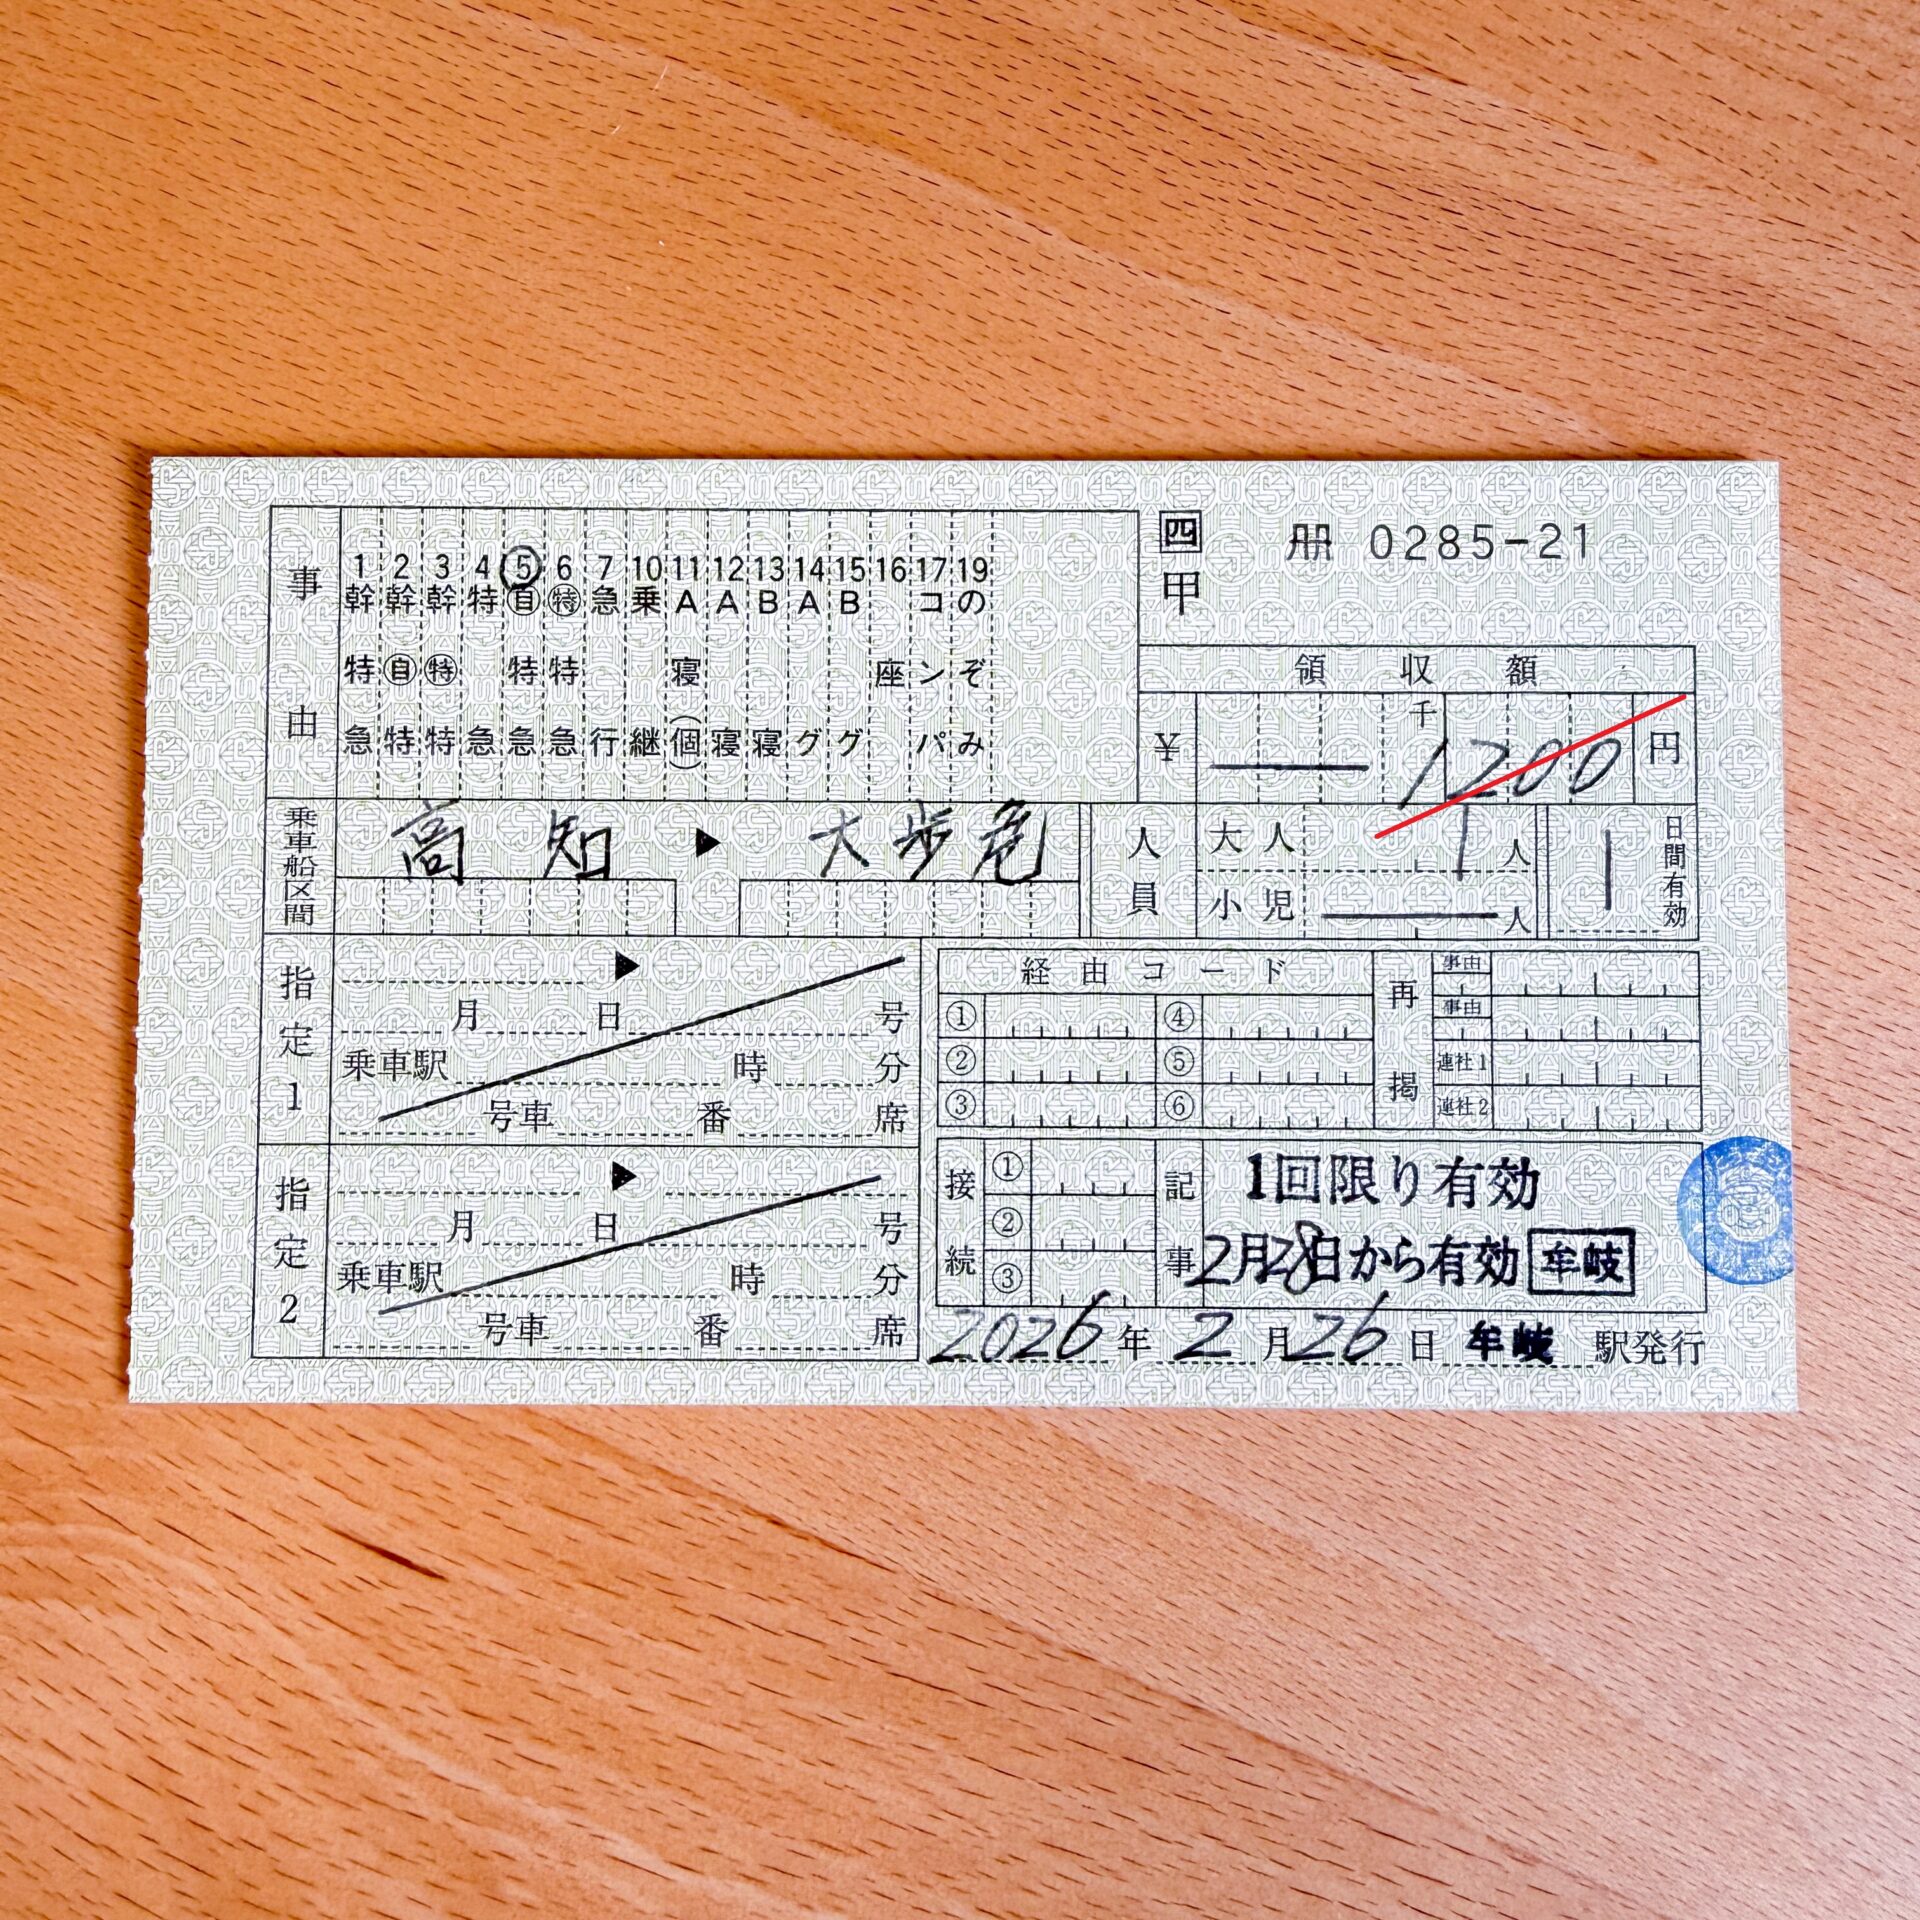 四 冊 0285-21
甲
事由
1 2 3 4 ⑤ 6 7 10 11 12 13 14 15 16 17 19
幹 幹 幹 特 自 特 急 乗 A A B A B コ の
特 自 特 特 特 寝 座 ン ぞ
急 特 特 急 急 急 行 継 (個) 寝 寝 グ グ パ み
領収額
¥ 千 1200 円
乗車船区間 高知 ▶ 大歩危
人員 大人 1人 1日間有効
小児 人
指定1
▶
月 日 号
乗車駅 時 分
号車 番 席
経由コード
① ④
② ⑤
③ ⑥
再掲
事由
事由
連社1
連社2
指定2
▶
月 日 号
乗車駅 時 分
号車 番 席
接続
①
②
③
記事
1回限り有効
2月28日から有効 牟岐
2026年2月26日 牟岐 駅発行